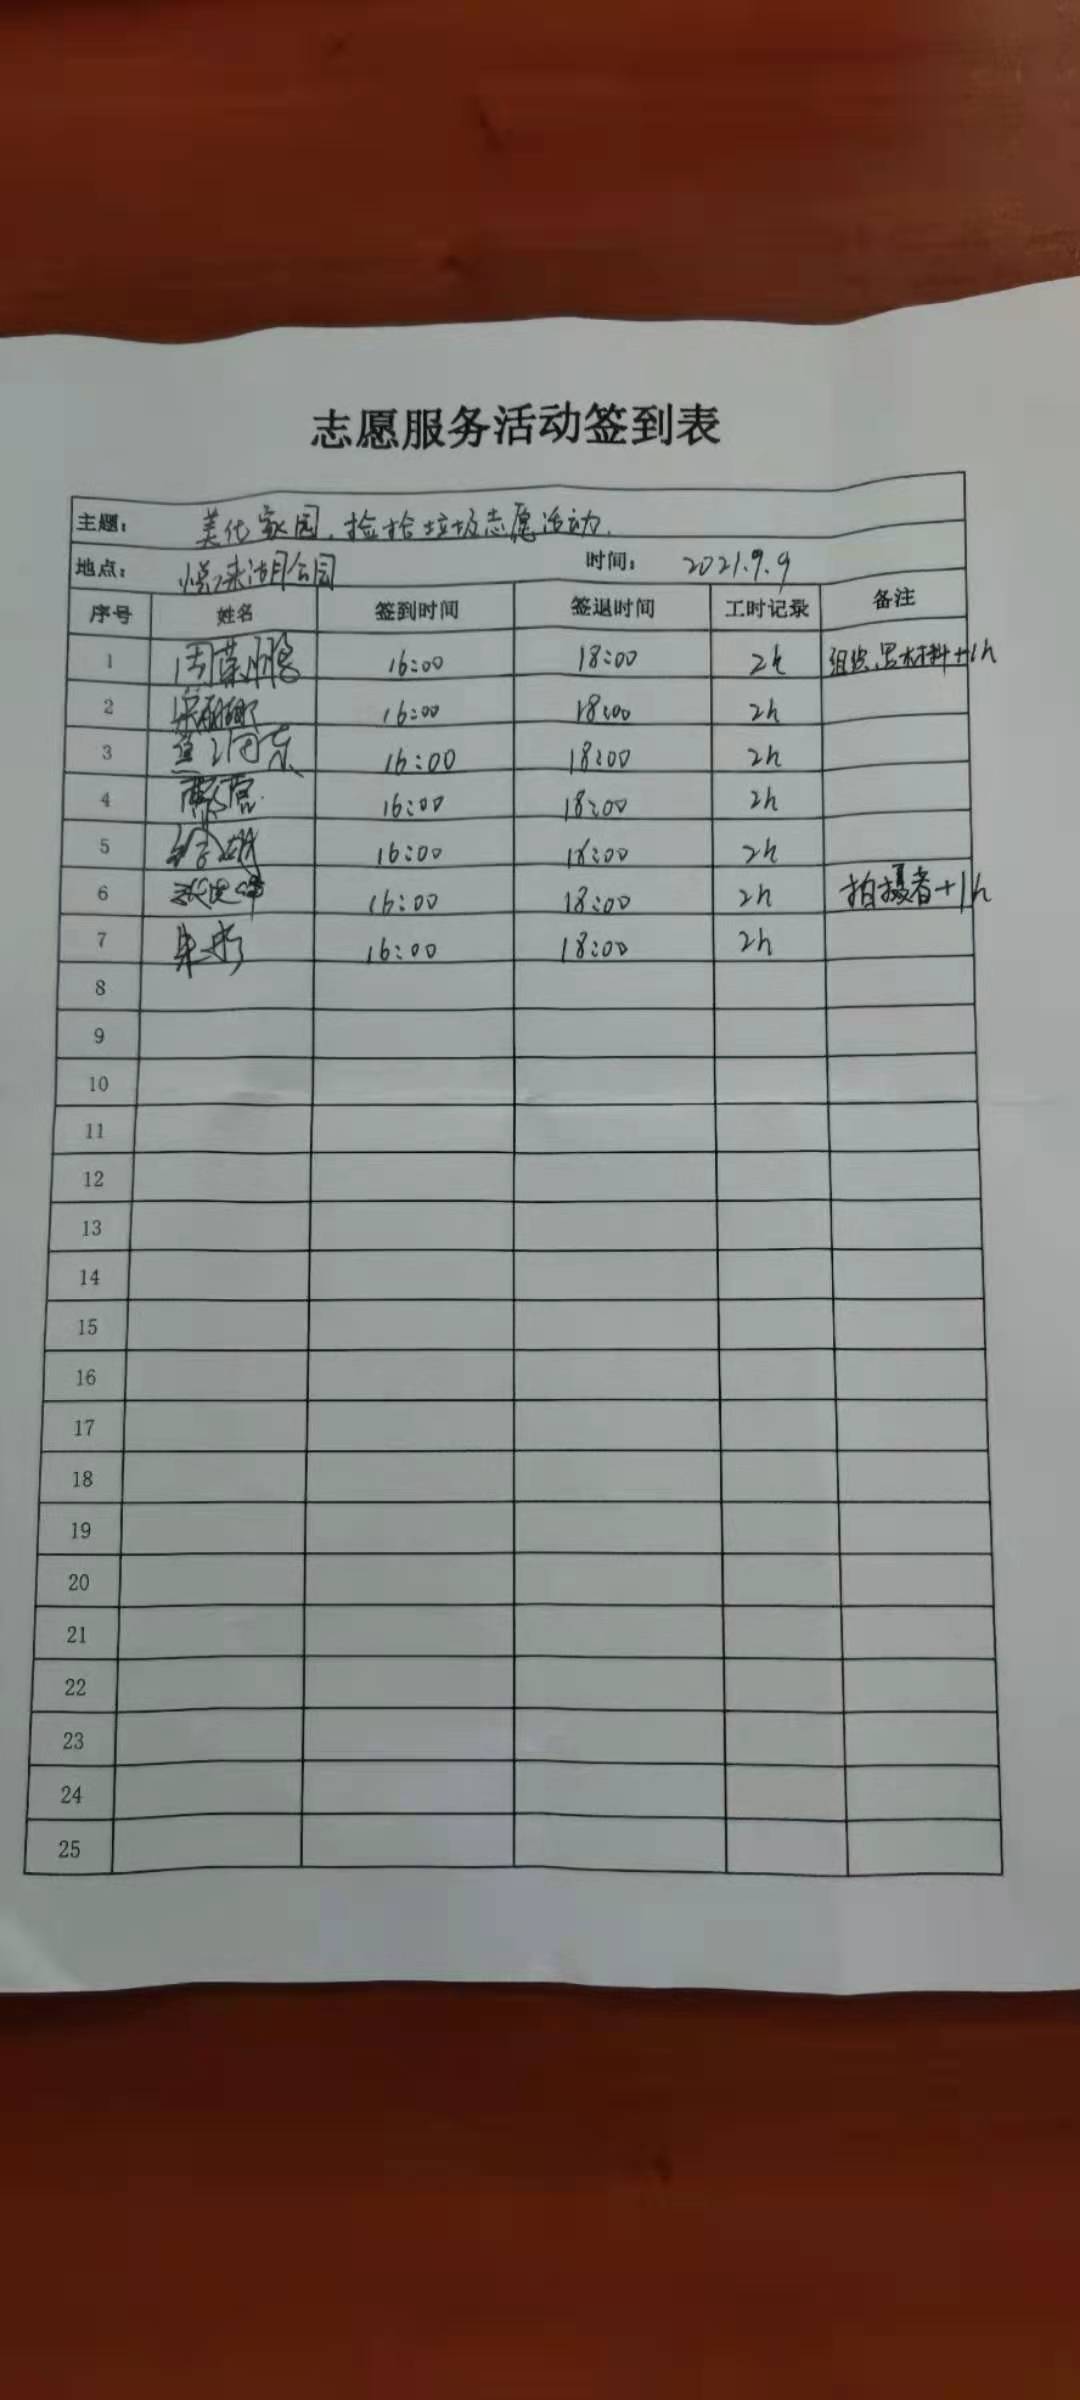 志愿服务活动签到表
主题： 美化家园，捡拾垃圾志愿活动.
地点： 悦来湖月公园 时间： 2021.9.9
序号 姓名 签到时间 签退时间 工时记录 备注
1 周荣鹏 16:00 18:00 2h 组织、写材料+1h
2 16:00 18:00 2h
3 16:00 18:00 2h
4 16:00 18:00 2h
5 16:00 18:00 2h
6 16:00 18:00 2h 拍摄者+1h
7 16:00 18:00 2h
8
9
10
11
12
13
14
15
16
17
18
19
20
21
22
23
24
25